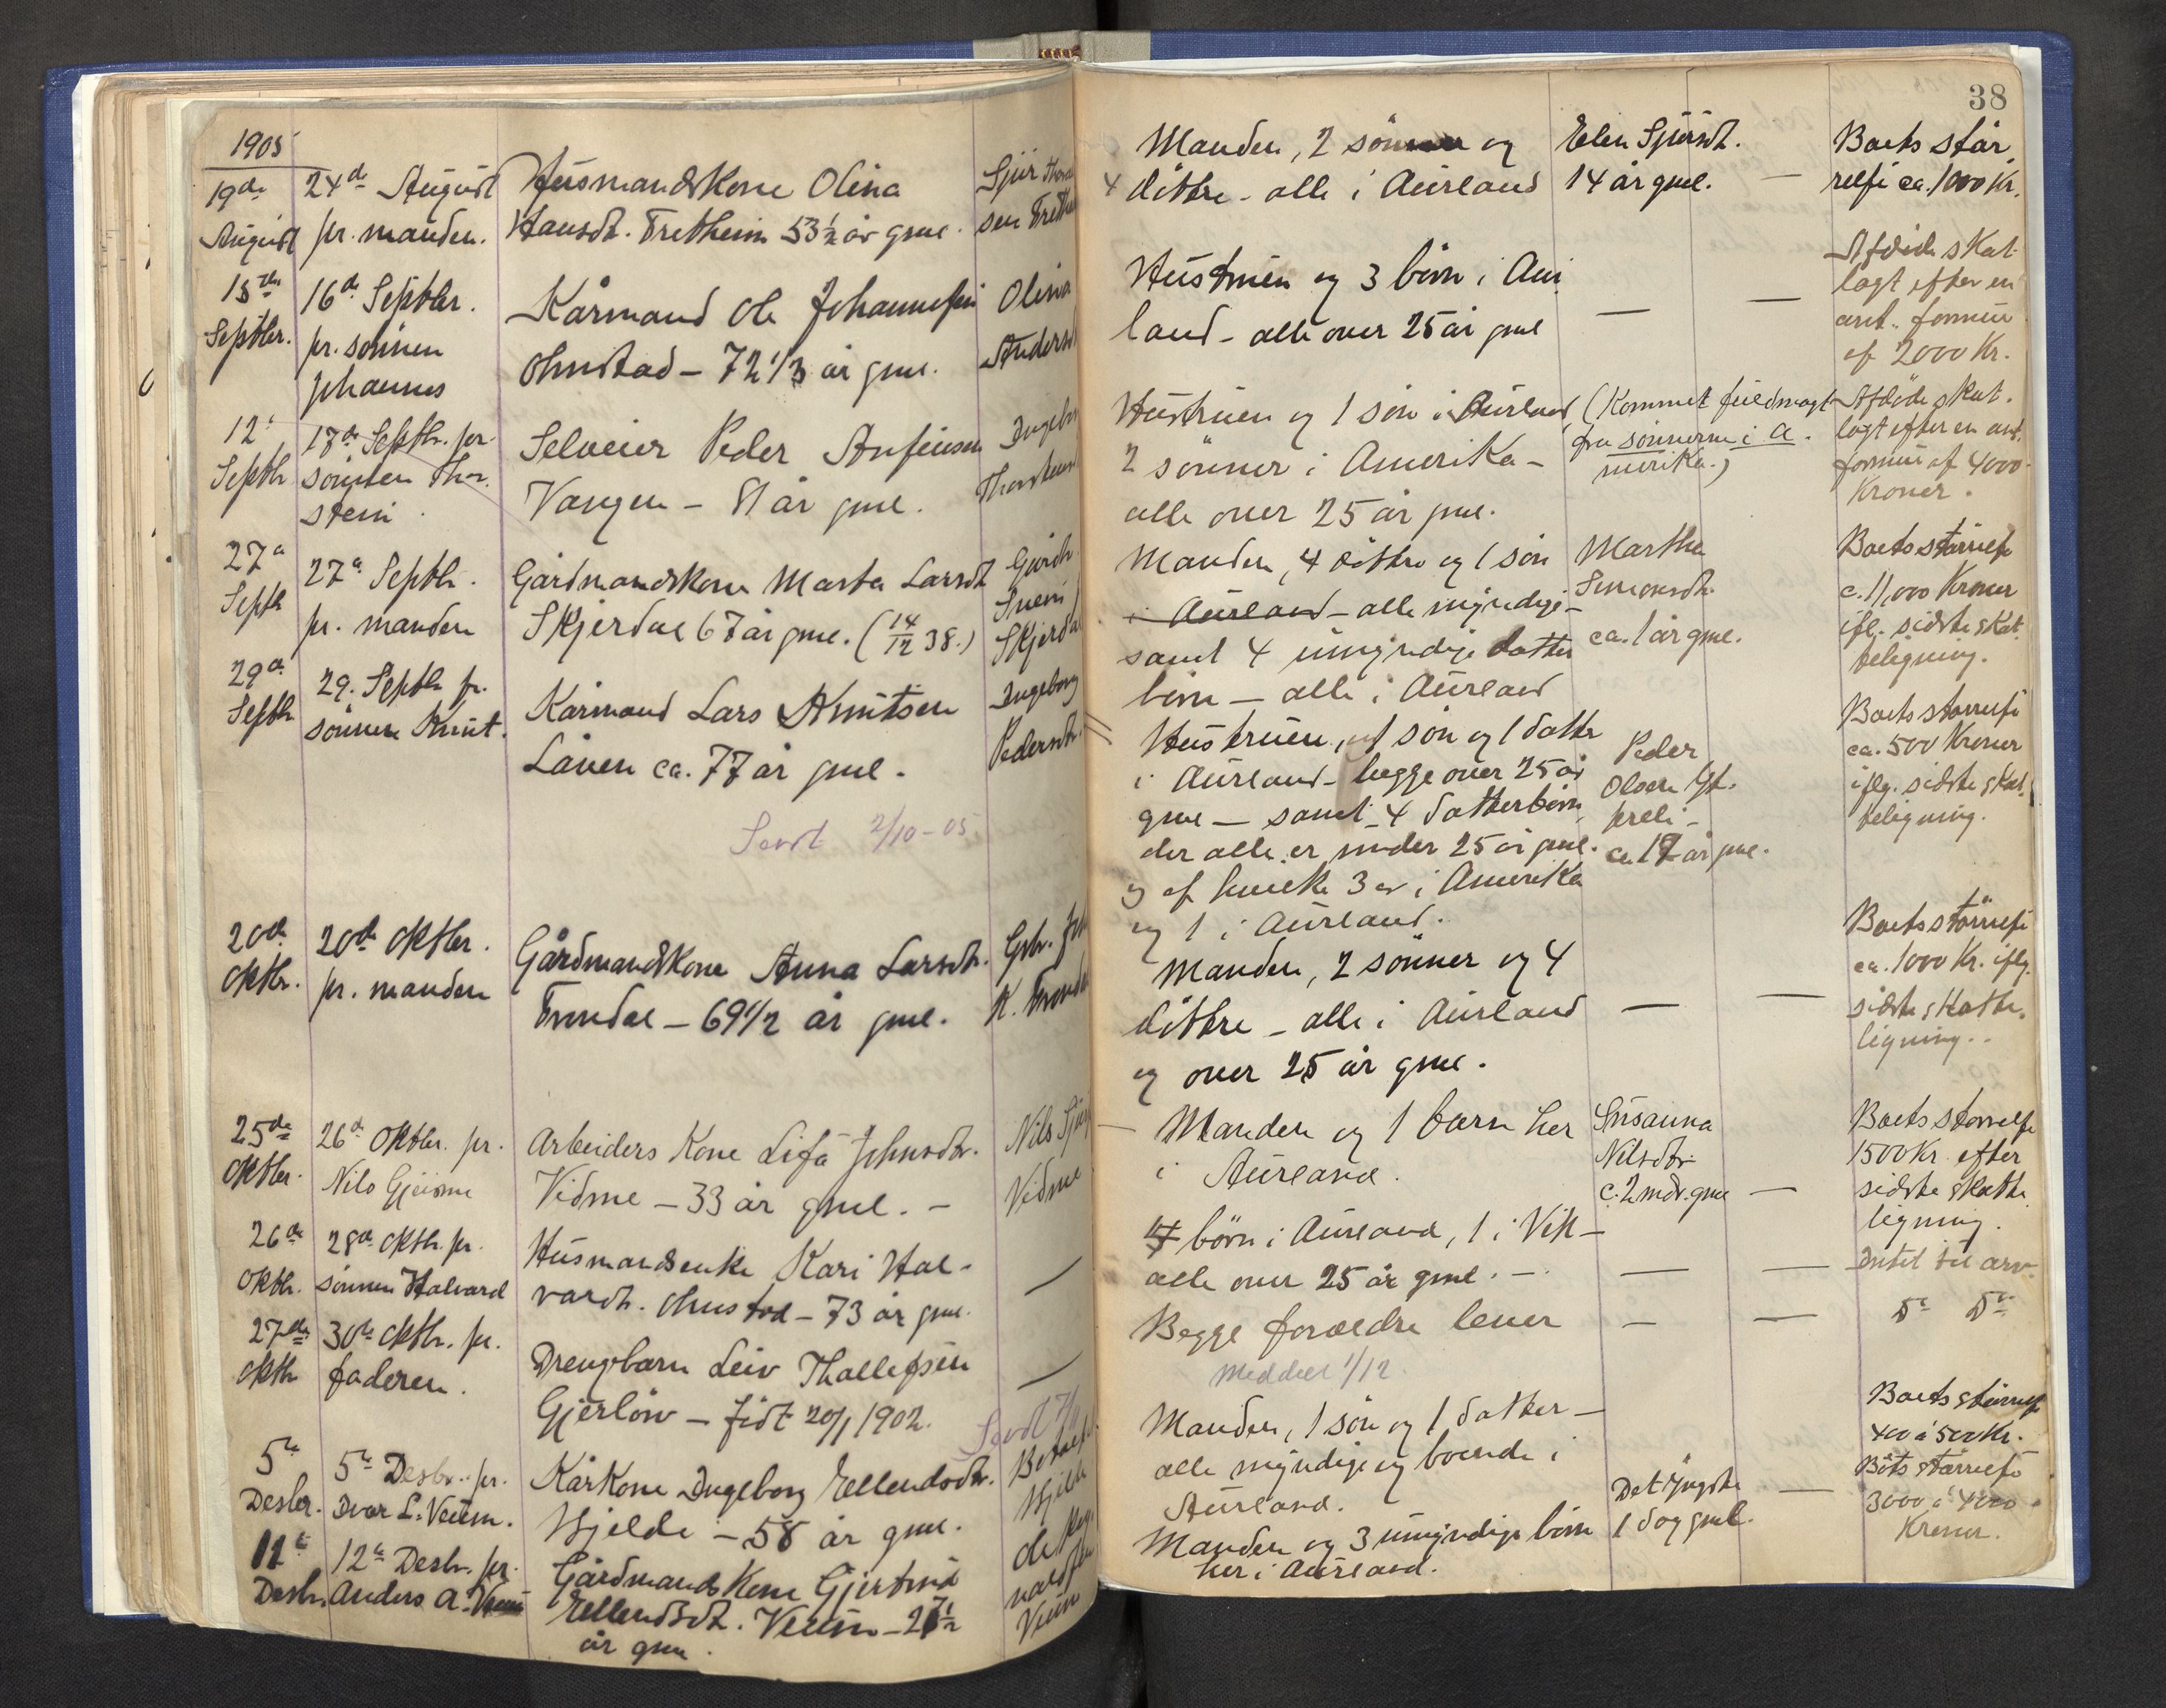 1905
19de
August
24de August
pr. manden.
Husmandskone Olina
Hansdt. Fretheim 53½ år gml.
Sjur
sen Freth
15de
Septbr.
16de Septbr.
pr. sønnen
Johannes
Kårmand Ole Johannesen
Ohnstad - 72 1/3 år gml.
Olina
Andersd
12
Septbr
18de Septbr. pr.
sønnen Thor-
stein
Selveier Peder Anfinsen
Vangen - 81 år gml.
Ingeb
Thorstens
27a
Septb
27a Septbr.
pr. manden
Gårdmandskone Marta Larsdt
Skjerdal 67 år gml. (14/12 38.)
Gårdb.
Svein
Skjerdal
29a
Septbr
29. Septbr pr.
sønnen Knut.
Kårmand Lars Knutsen
Låven ca. 77 år gml.
Ingeborg
Pedersdt.
Sendt 2/10-05
20de
Oktbr.
20de Oktbr.
pr. manden
Gårdmandskone Anna Larsdt.
Frondal - 69 1/2 år gml.
Gbr.
K. Fronda
25de
Oktbr.
26de Oktbr. pr.
Nils Gjeisme
Arbeiders Kone Lisa Johnsdtr.
Vidme - 33 år gml. -
Nils
Vidme
26de
Oktbr.
28de Oktbr. pr.
sønnen Halvard
Husmandsenke Kari Hal-
vardt. Ohnstad - 73 år gml.
27de
Oktbr
30te Oktbr. pr.
faderen.
Drengbarn Leiv Thollefsen
Gjerløw - født 20/1 1902.
Sendt 7/1
5te
Desbr.
5te Desbr. pr.
Ivar L. Veium.
Kårkone Ingeborg Ellendsdtr.
Hjelde - 58 år gml.
Hjelde
11te
Desbr.
12te Desbr. pr.
Anders A. Veium
Gårdmandskone Gjertrud
Ellendsdt. Veium - 27½
år gml.
Veium
38
Manden, 2 sønner og
4 døttre - alle i Aurland
Elen Sjursdt.
14 år gml.
—
Boets stør
relse ca. 1000 Kr.
Hustruen og 3 børn i Aur
land - alle over 25 år gml
—
—
Afdøde skat-
lagt efter en
ant. formue
af 2000 Kr.
Hustruen og 1 søn i Aurland
2 sønner i Amerika -
alle over 25 år gml.
(Kommet fuldmagt
fra sønnerne i A-
merika.)
Afdøde skat-
lagt efter en ant.
formue af 4000
Kroner.
Manden, 4 døttre og 1 søn
i Aurland - alle myndige -
samt 4 umyndige datter
børn - alle i Aurland
Martha
Simonsdt.
ca. 1 år gml.
Boets størrelse
c. 11,000 Kroner
ifl. sidste skat
teligning.
Hustruen, 1 søn og 1 datter
i Aurland - begge over 25 år
gml - samt 4 datterbørn,
der alle er under 25 år gml.
og af hvilke 3 er i Amerika
og 1 i Aurland.
Peder
Olsen
ca 17 år gml.
Boets størrelse
ca. 500 Kroner
iflg. sidste skat-
teligning.
Manden, 2 sønner og 4
døttre - alle i Aurland
og over 25 år gml.
—
—
Boets størrelse
ca. 1000 Kr. iflg.
sidste skatte-
ligning.
Manden og 1 barn her
i Aurland.
Susanna
Nilsdtr
c. 2 mdr. gml
—
Boets størrelse
1500 Kr. efter
sidste skatte
ligning.
børn i Aurland, 1 i Vik -
alle over 25 år gml. -
—
—
Intet til arv.
Begge forældre lever
—
—
Do Do
Meddelt 1/12.
Manden, 1 søn og 1 datter -
alle myndige og boende i
Aurland.
Boets størrelse
400 à 500 Kr.
Manden og 3 umyndige børn
her i Aurland.
Det yngste
1 dag gml.
—
Bots størrelse
3000 à 4000
Kroner.